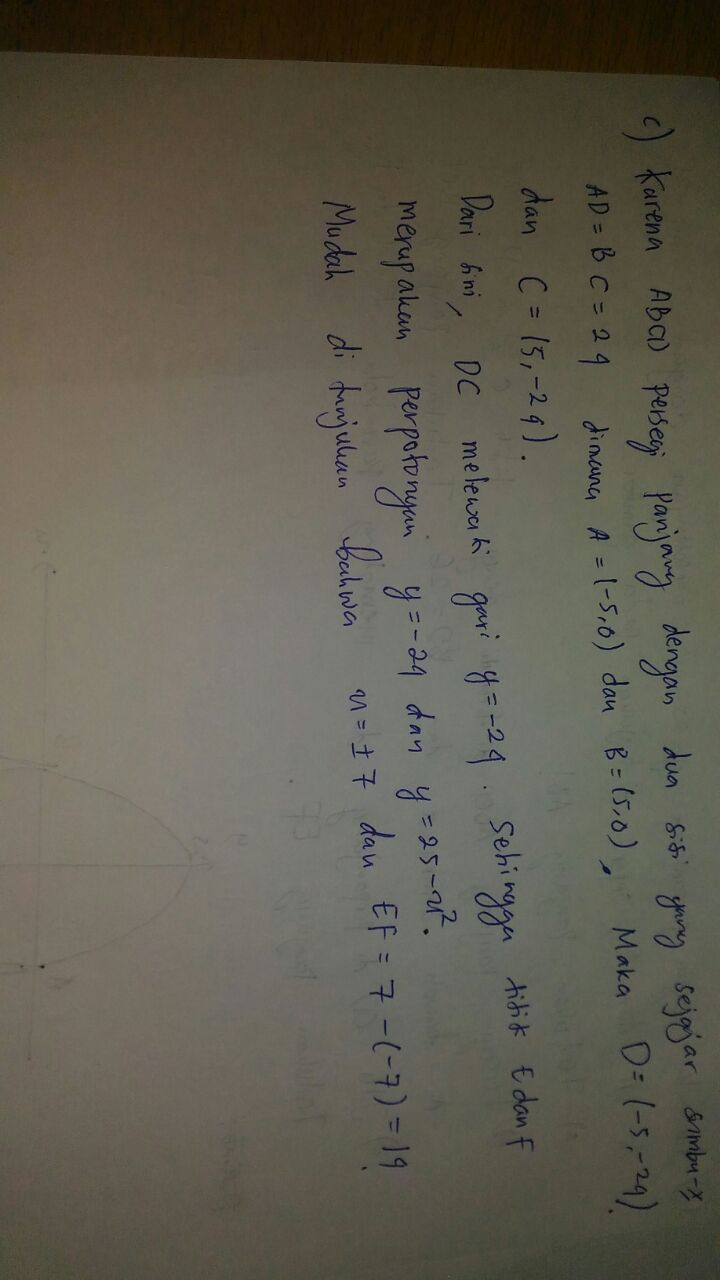 c) Karena ABCD persegi panjang dengan dua sisi yang sejajar sumbu-x,
AD = BC = 24 dimana A = (-5,0) dan B = (5,0), Maka D = (-5,-24).
dan C = (5,-24).
Dari sini, DC melewati gari y = -24. Sehingga titik E dan F
merupakan perpotongan y = -24 dan y = 25 - x².
Mudah di tunjukan bahwa x = ± 7 dan EF = 7 - (-7) = 14.